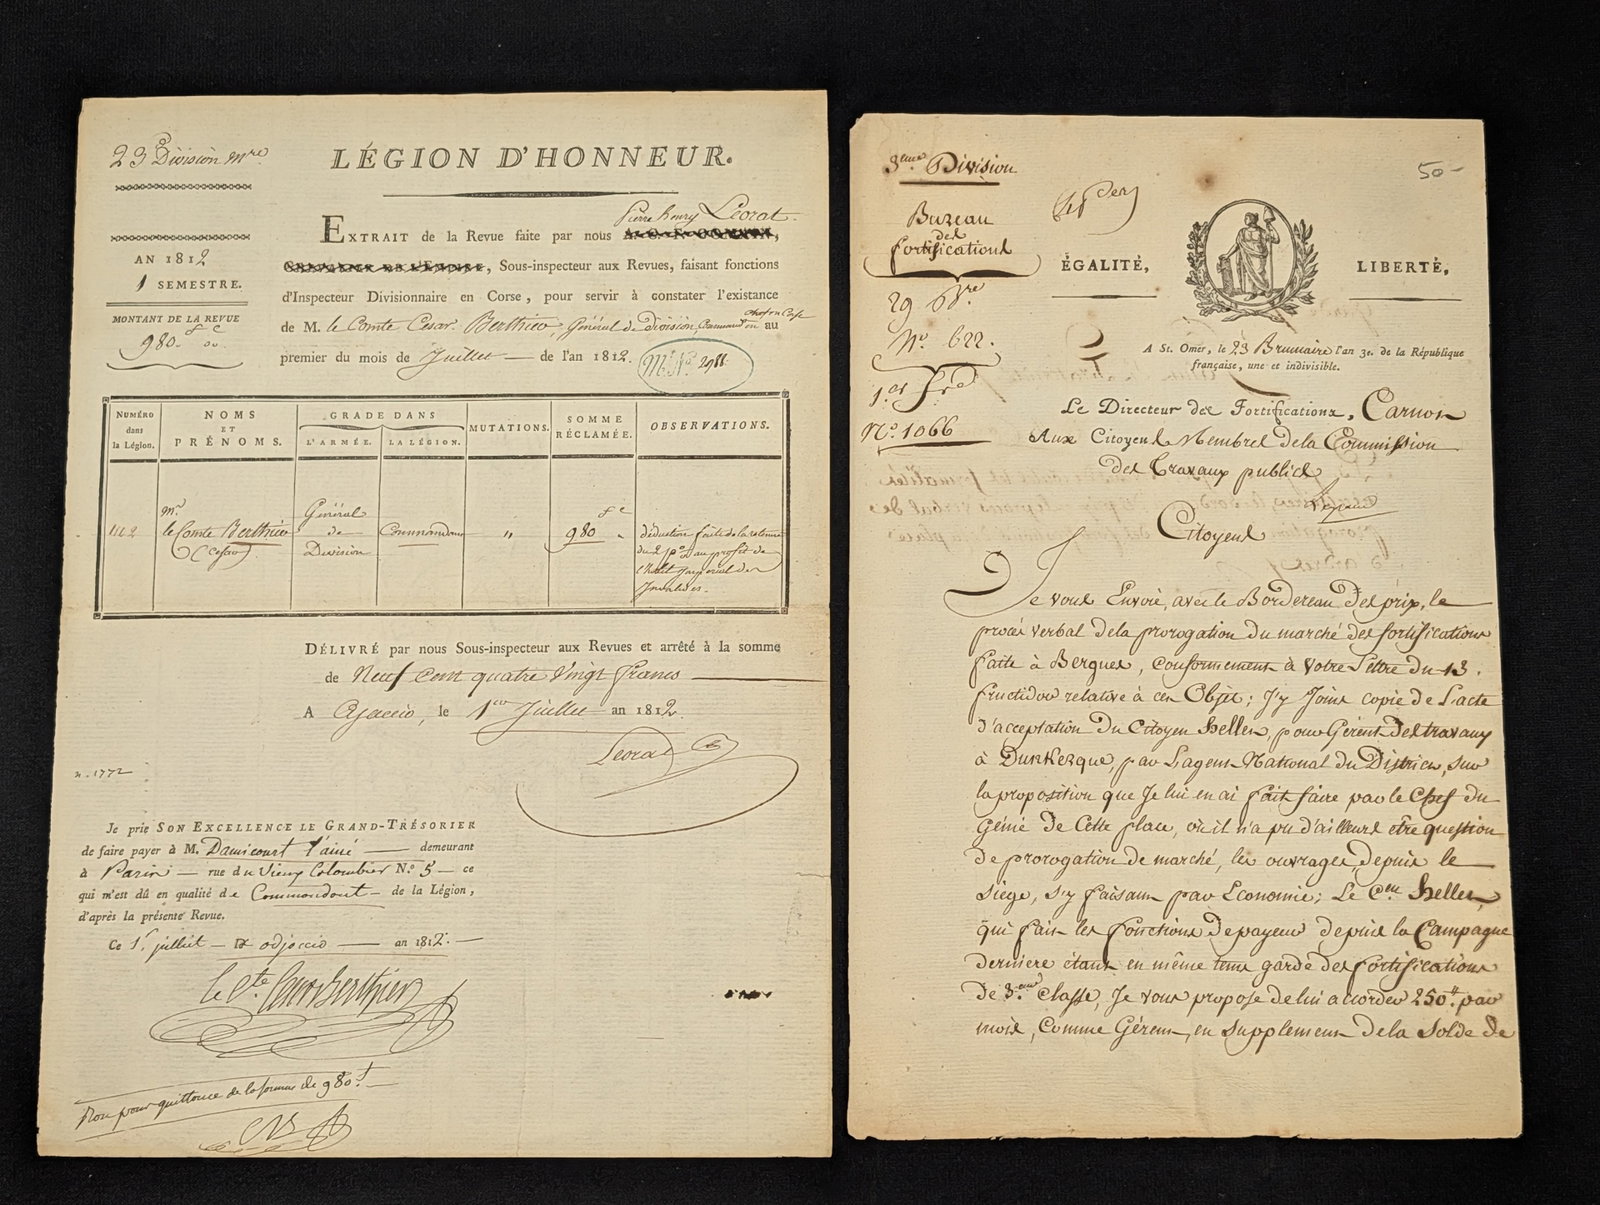 23 Division mre
LÉGION D'HONNEUR.
AN 1812
1 SEMESTRE.
MONTANT DE LA REVUE
980 fc
Pierre henry Léorat
EXTRAIT de la Revue faite par nous
, Sous-inspecteur aux Revues, faisant fonctions
d'Inspecteur Divisionnaire en Corse, pour servir à constater l'existance
de M. le Comte Cesar Berthier, Général de Division Commandant en au
premier du mois de Juillet de l'an 1812.
Mt. No. 2988
NUMÉRO dans la Légion.
NOMS ET PRÉNOMS.
GRADE DANS
L'ARMÉE.
LA LÉGION.
MUTATIONS.
SOMME RÉCLAMÉE.
OBSERVATIONS.
1102
mr
le Comte Berthier
(Cesar)
Général
de
Division
Commandant
"
980 fc
déduction faite de la retenue
du 2 p% au profit de
l'hôtel Impérial des
Invalides.
DÉLIVRÉ par nous Sous-inspecteur aux Revues et arrêté à la somme
de Neuf cent quatre Vingt francs
A Ajaccio, le 1er Juillet an 1812.
Léorat
n. 1772
Je prie SON EXCELLENCE LE GRAND-TRÉSORIER
de faire payer à M. Damicourt l'ainé demeurant
à Paris rue du Vieux Colombier No 5 ce
qui m'est dû en qualité de Commandant de la Légion,
d'après la présente Revue.
Ce 1r juillet adjaccio an 1812.
le Cte Cesar Berthier
Bon pour quittance de la somme de 980 f
3eme Division
50-
Bureau
des
fortifications
29 Bre
No. 622.
No. 1066
ÉGALITÉ,
LIBERTÉ,
A St. Omer, le 23 Brumaire l'an 3e. de la République
française, une et indivisible.
Le Directeur des Fortifications, Carnot
Aux Citoyens Membres de la Commission
des Travaux publics
Citoyens
Je vous Envoie, avec le Bordereau des prix, le
procès verbal de la prorogation du marché des fortifications
faite à Bergues, conformement à votre Lettre du 13.
fructidor relative à cet Objet; J'y Joins copie de L'acte
d'acceptation du Citoyen hellen, pour Gérent des travaux
à Dunkerque, par L'agent National du District, sur
la proposition que Je lui en ai fait faire par le Chef du
Génie de Cette place, où il n'a pu d'ailleurs être question
de prorogation de marché, les ouvrages, depuis le
siége, s'y faisant par Economie; Le Cen hellen,
qui fait les fonctions de payeur depuis la Campagne
derniere étant en même tems garde des fortifications
de 3.eme Classe, Je vous propose de lui accorder 250tt par
mois, comme Gérent, en supplement de la Solde de